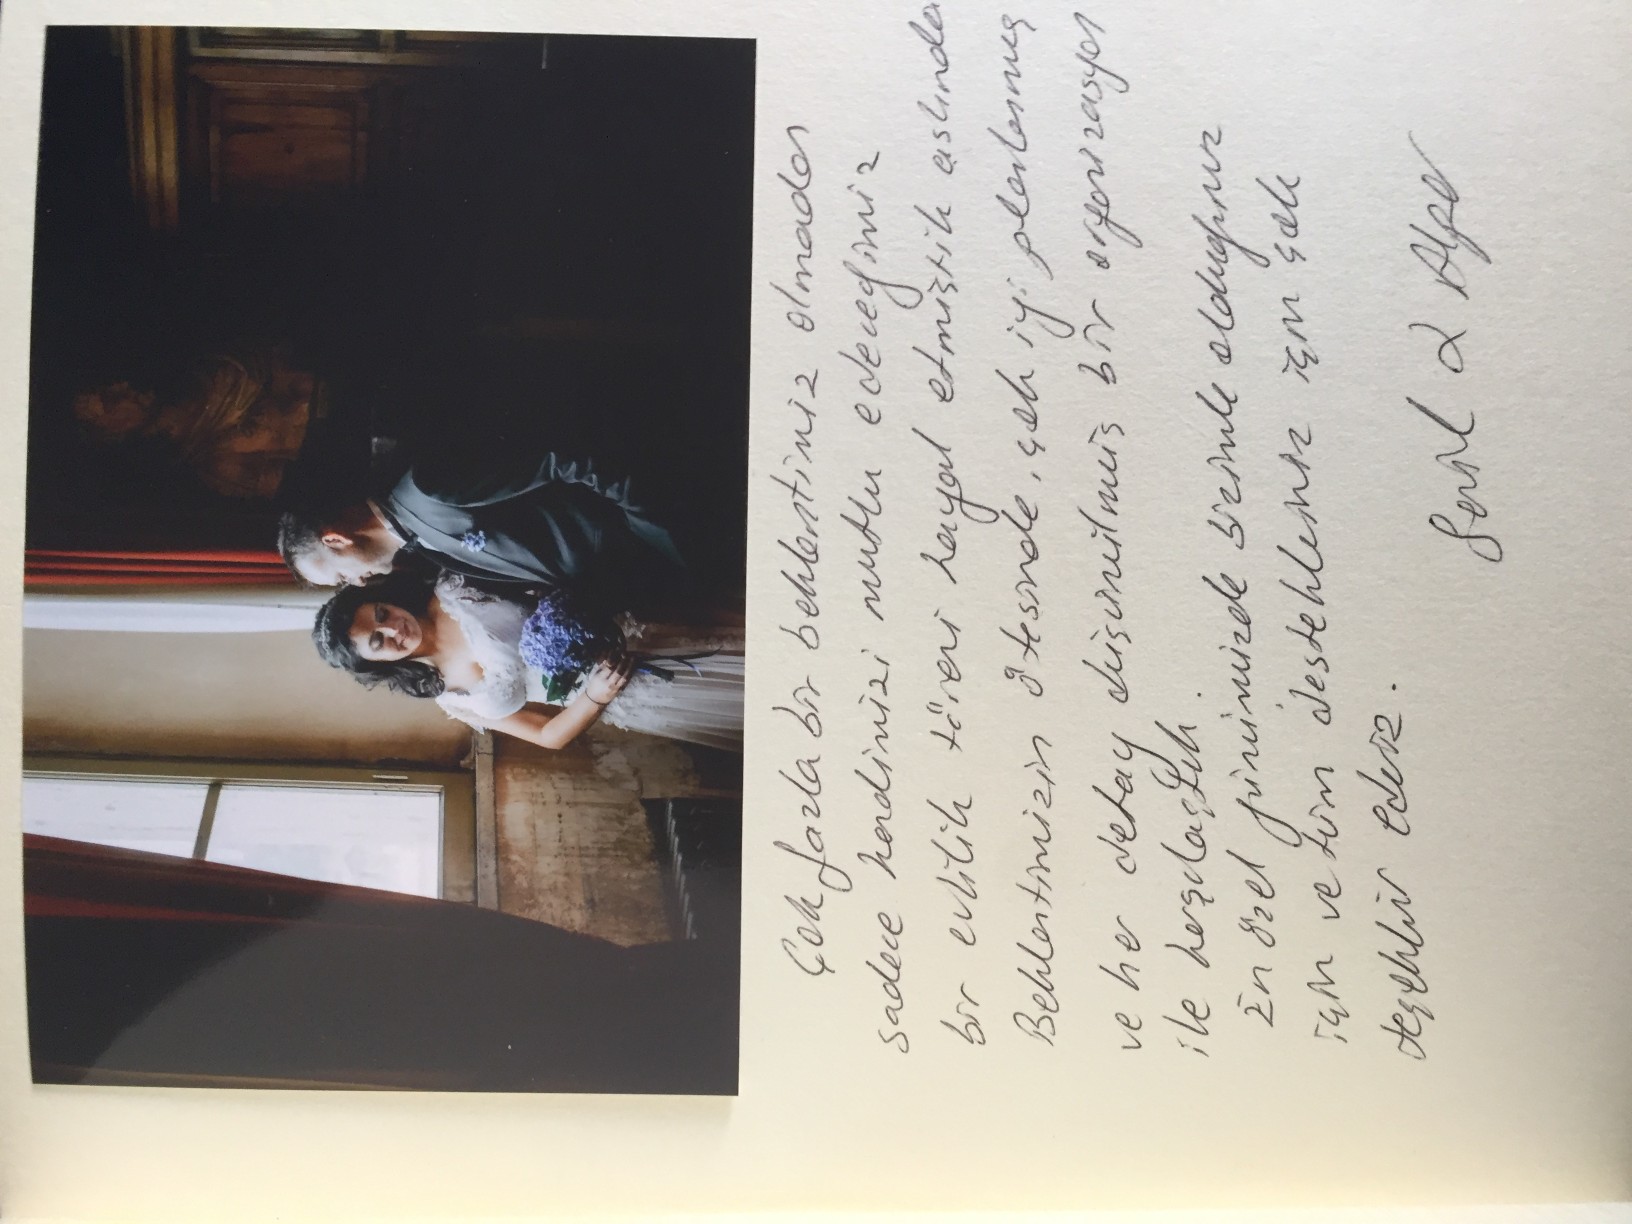 Çok fazla bir beklentimiz olmadan
sadece kendimizi mutlu edeceğimiz
bir evlilik töreni hayal etmiştik aslında
Beklentimizin ötesinde, çok iyi planlanmış
ve her detay düşünülmüş bir organizasyon
ile karşılaştık.
En özel günümüzde bizimle olduğunuz
için ve tüm destekleriniz için çok
teşekkür ederiz.
& Alper